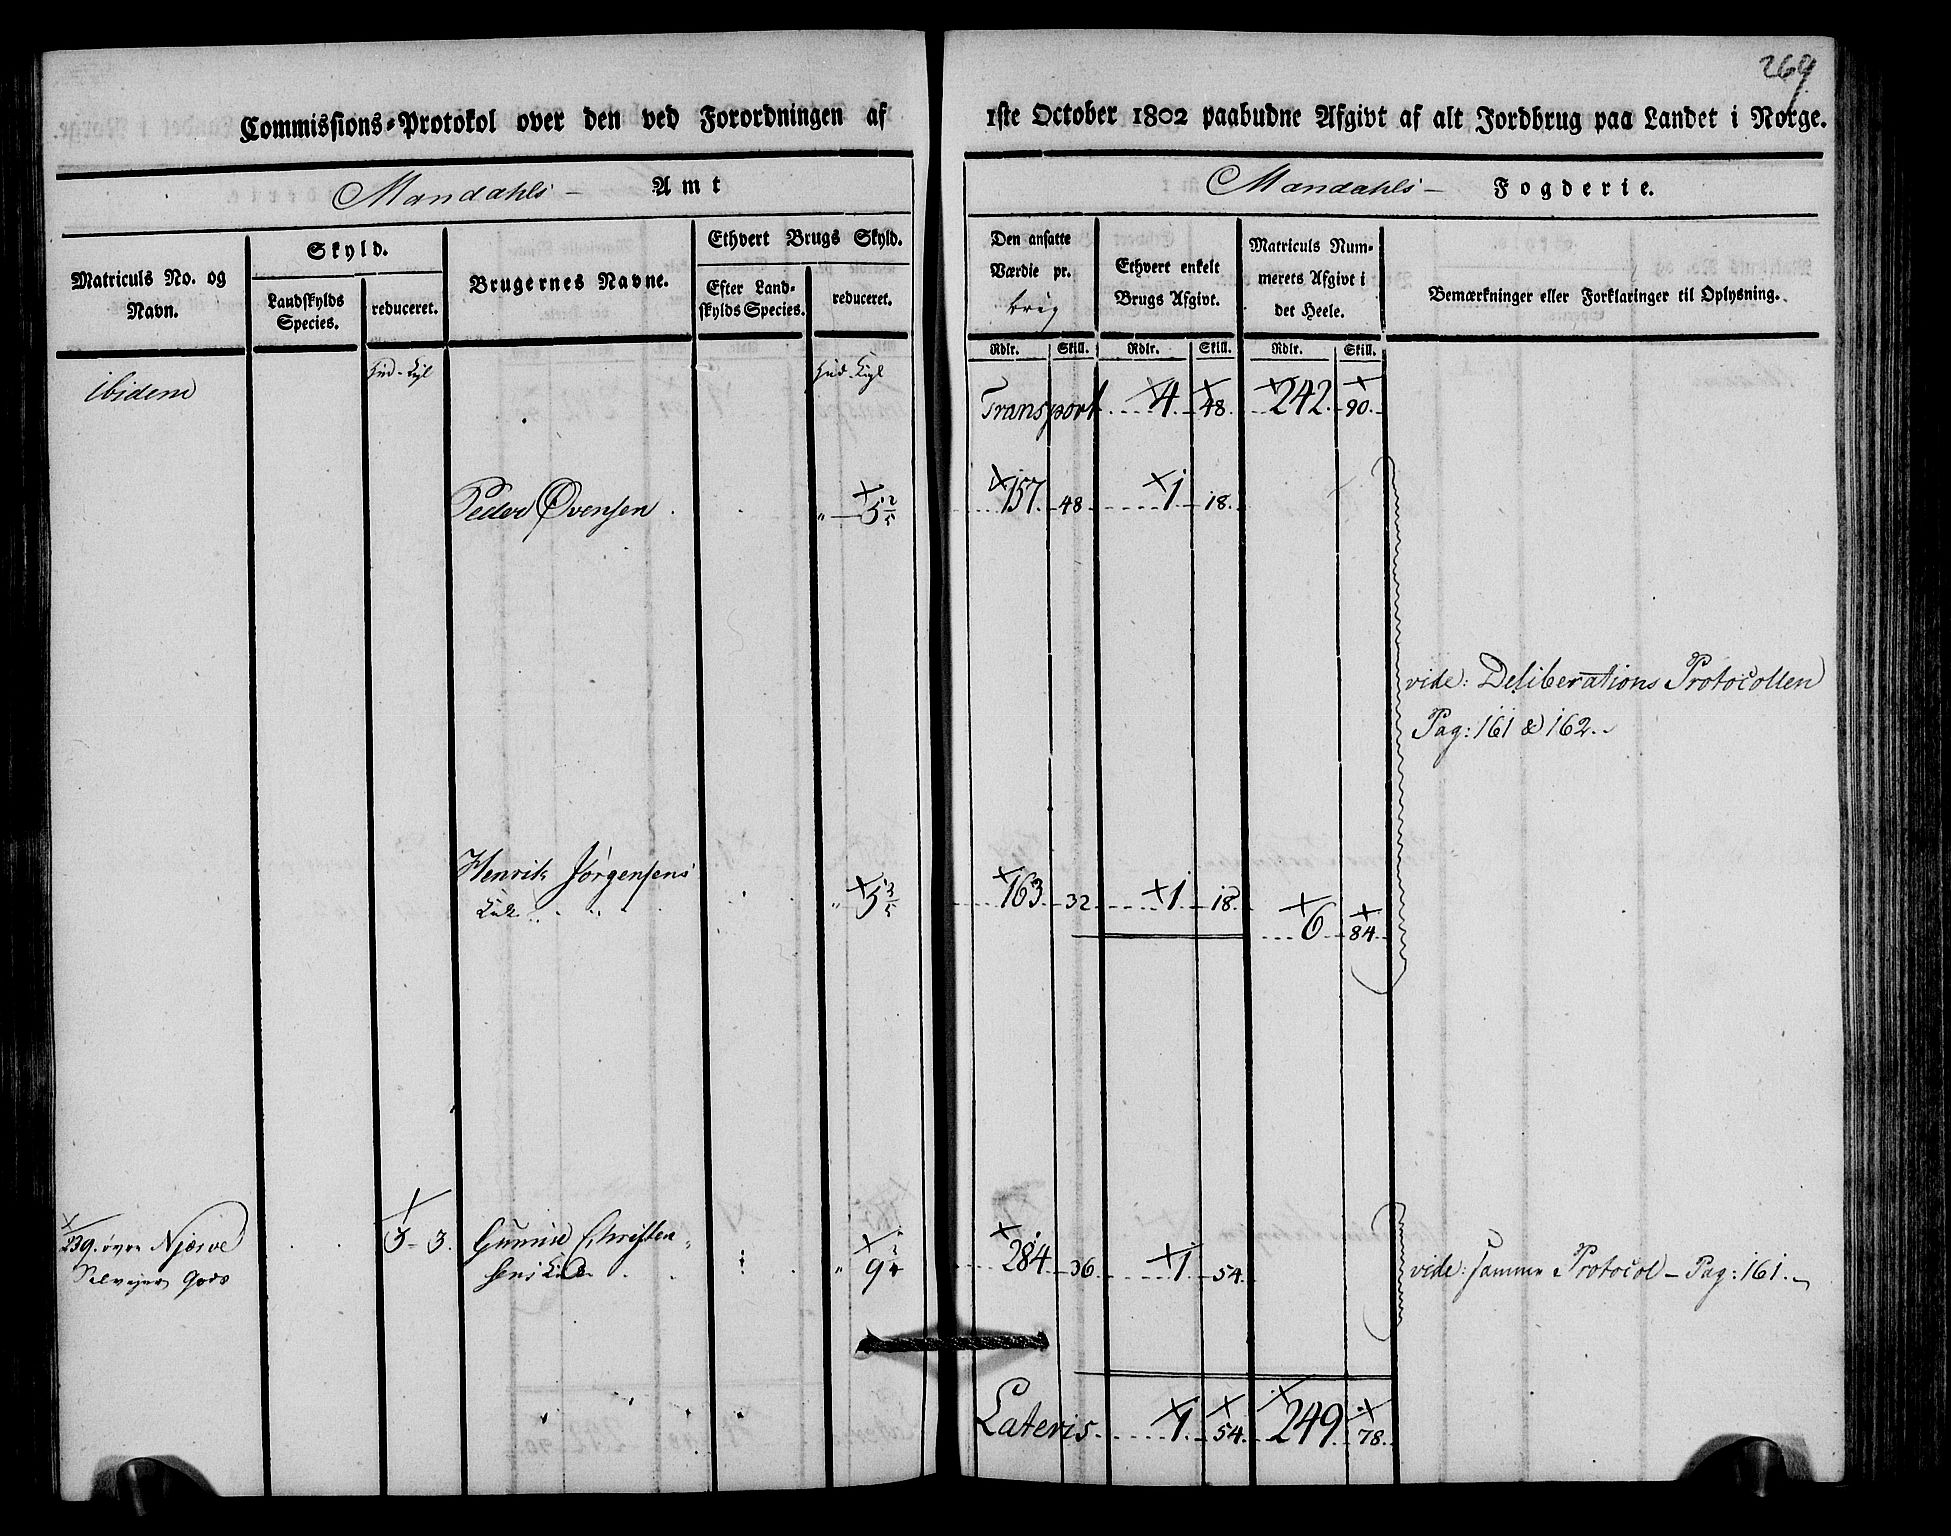 269
Commissions-Protokol over den ved Forordningen af 1ste October 1802 paabudne Afgivt af alt Jordbrug paa Landet i Norge.
Mandahls – Amt
Mandahls – Fogderie.
Matriculs No. og Navn.
Skyld.
Landskylds Species.
reduceret.
Brugernes Navne.
Ethvert Brugs Skyld.
Efter Landskylds Species.
reduceret.
Den ansatte Værdie pr. brug
Ethvert enkelt Brugs Afgivt.
Matriculs Nummerets Afgivt i det Heele.
Bemærkninger eller Forklaringer til Oplysning.
Rdlr. Skill. Rdlr. Skill. Rdlr. Skill.
ibidem Hud. Hud. Transport 4 48 242 90
Peder Ovensen „ 5 2/5 157 48 1 18
vide: Deliberations Protocollen
Pag: 161 & 162.
Henrik Jørgensens
„ 5 3/5 163 32 1 18
6 84
239. øvre Njerve 3 Gunnild Christen-
Selvejer Gods sens „ 9 284 36 1 54 vide: samme Protocol – Pag: 161.
Lateris 1 54 249 78